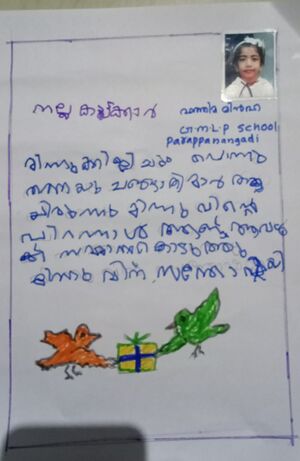 നല്ല കൂട്ടുക്കാർ
മിൻഹ
G.M.L.P School
Parappanangadi
മിന്നുക്കിളിയും പൊന്നു
തത്തയും ചങ്ങാതിമാർ ആ
യിരുന്നു മിന്നുവിന്റെ
പിറന്നാൾ ആണ് അവൾ
ക്ക് സമ്മാനം കൊടുത്തു
മിന്നുവിന് സന്തോഷമായി